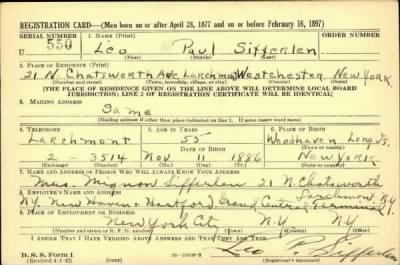 REGISTRATION CARD—(Men born on or after April 28, 1877 and on or before February 16, 1897)
SERIAL NUMBER 1. NAME (Print) ORDER NUMBER
U 550 Leo Paul Sifferlen
(First) (Middle) (Last)
2. PLACE OF RESIDENCE (Print)
21 N. Chatsworth Ave Larchmont Westchester New York
(Number and street) (Town, township, village, or city) (County) (State)
[THE PLACE OF RESIDENCE GIVEN ON THE LINE ABOVE WILL DETERMINE LOCAL BOARD
JURISDICTION; LINE 2 OF REGISTRATION CERTIFICATE WILL BE IDENTICAL]
3. MAILING ADDRESS
Same
[Mailing address if other than place indicated on line 2. If same insert word same]
4. TELEPHONE 5. AGE IN YEARS 6. PLACE OF BIRTH
Larchmont 55 Woodhaven Long Is.
DATE OF BIRTH (Town or county)
2 - 3514 Nov 11 1886 New York
(Exchange) (Number) (Mo.) (Day) (Yr.) (State or country)
7. NAME AND ADDRESS OF PERSON WHO WILL ALWAYS KNOW YOUR ADDRESS
Mrs. Mignon Sifferlen 21 N. Chatsworth
8. EMPLOYER'S NAME AND ADDRESS Larchmont N.Y.
N.Y. New Haven & Hartford Grand Central Terminal
9. PLACE OF EMPLOYMENT OR BUSINESS
New York City N.Y. N.Y.
(Number and street or R. F. D. number) (Town) (County) (State)
I AFFIRM THAT I HAVE VERIFIED ABOVE ANSWERS AND THAT THEY ARE TRUE.
D. S. S. Form 1
(Revised 4-1-42) (over) Leo P. Sifferlen
(Registrant's signature)